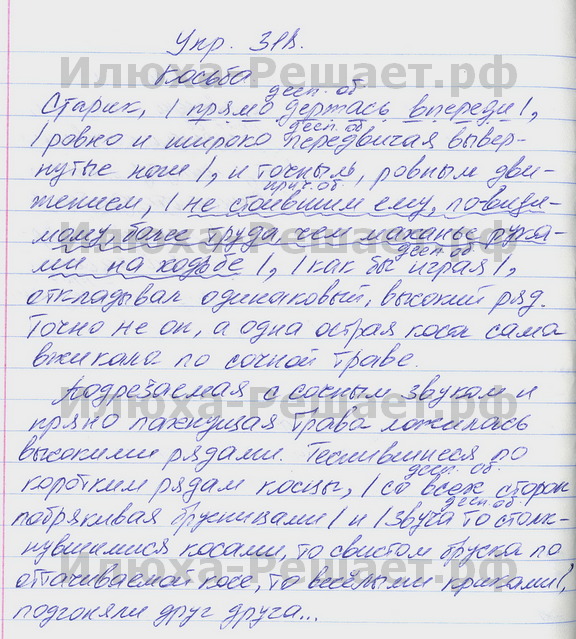 Упр. 318.
Косьба
деепр. об.
Старик, | прямо держась впереди |,
дееп. об.
| ровно и широко передвигая вывер-
нутые ноги |, и точным, ровным дви-
прич. об.
жением, | не стоившим ему, по-види-
мому, более труда, чем маханье рука-
дееп. об.
ми на ходьбе |, | как бы играя |,
откладывал одинаковый, высокий ряд.
Точно не он, а одна острая коса сама
вжикала по сочной траве.
Подрезаемая с сочным звуком и
пряно пахнущая трава ложилась
высокими рядами. Теснившиеся по
дееп. об.
коротким рядам косцы, | со всех сторон
дееп. об.
побрякивая брусницами | и | звуча то столк-
нувшимися косами, то свистом бруска по
оттачиваемой косе, то весёлыми криками |,
подгоняли друг друга...
Илюха-Решает.рф
Илюха-Решает.рф
Илюха-Решает.рф
Илюха-Решает.рф
Илюха-Решает.рф